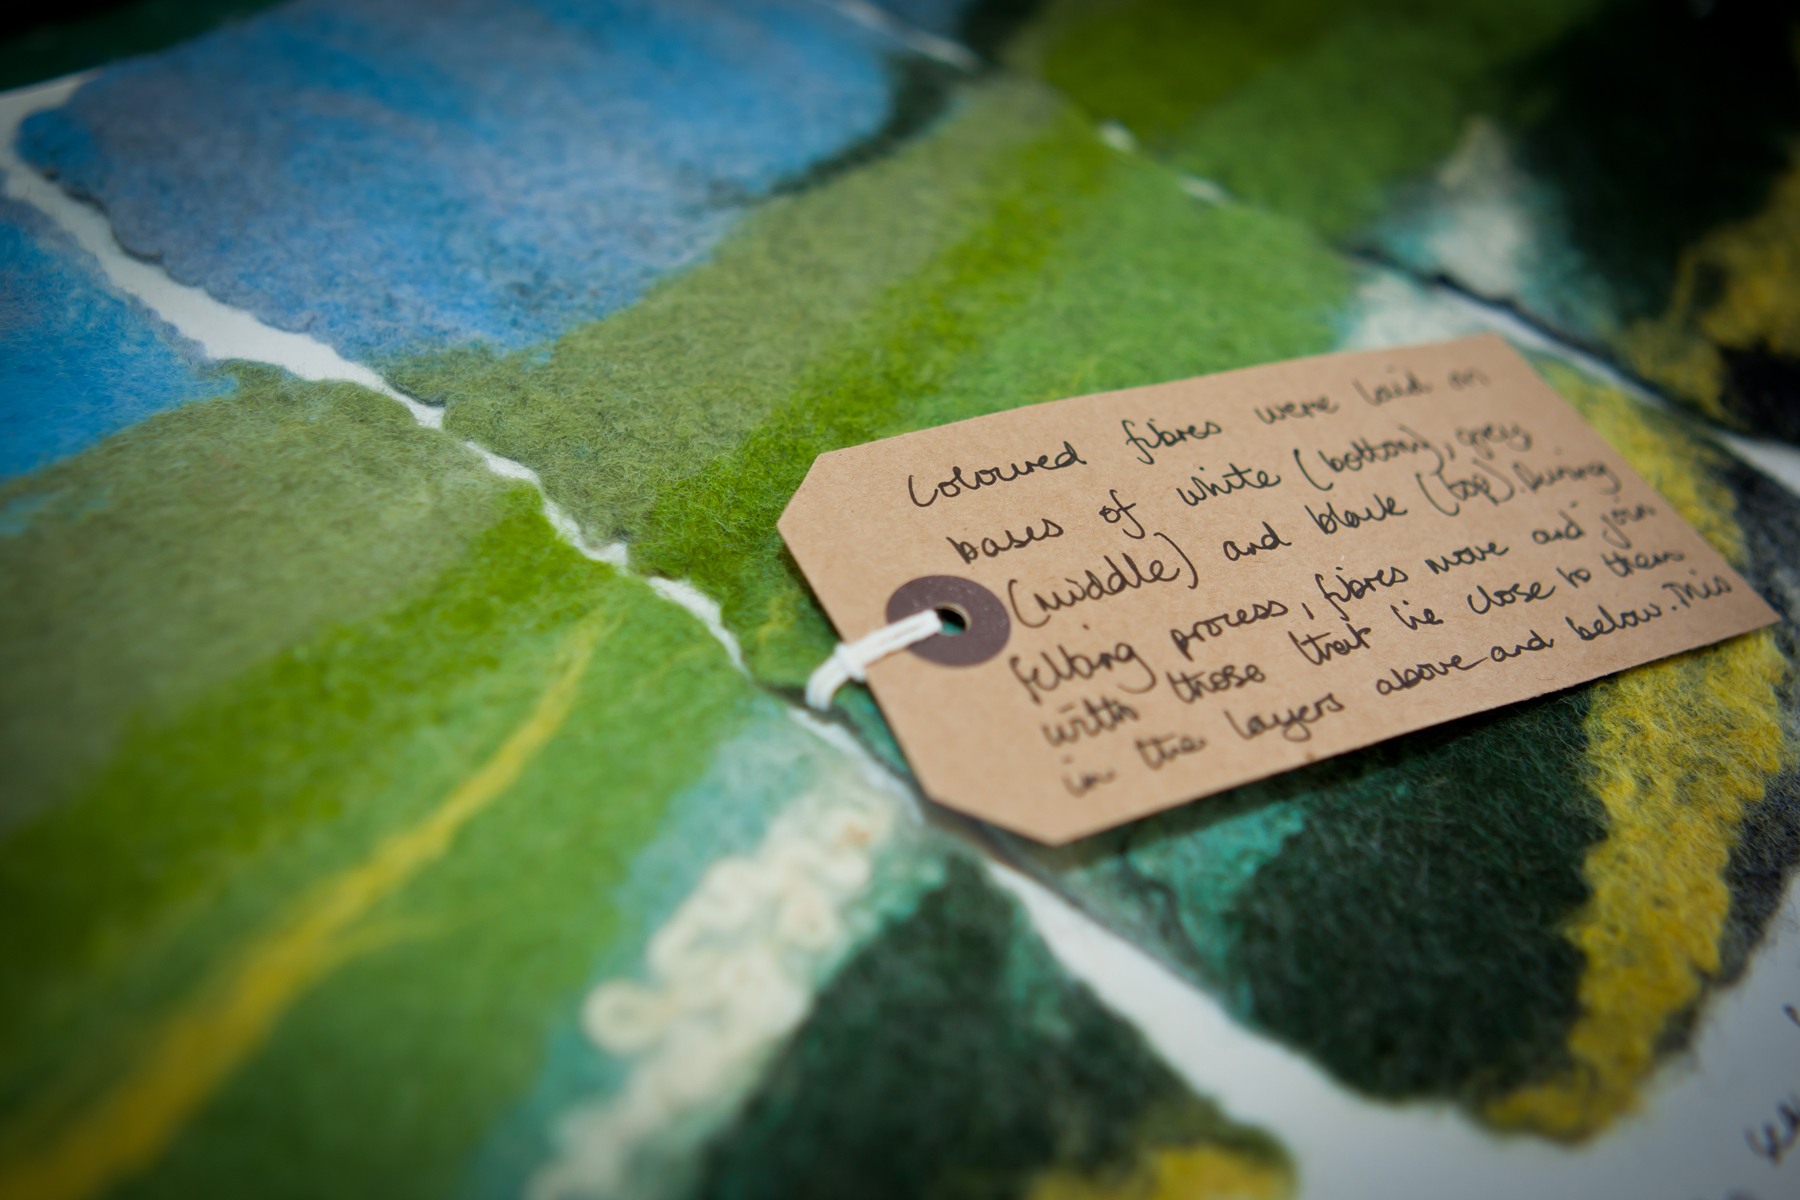 Coloured fibres were laid on
bases of white (bottom), grey
(middle) and black (top). During
felting process, fibres move and join
with those that lie close to them
in the layers above and below. This